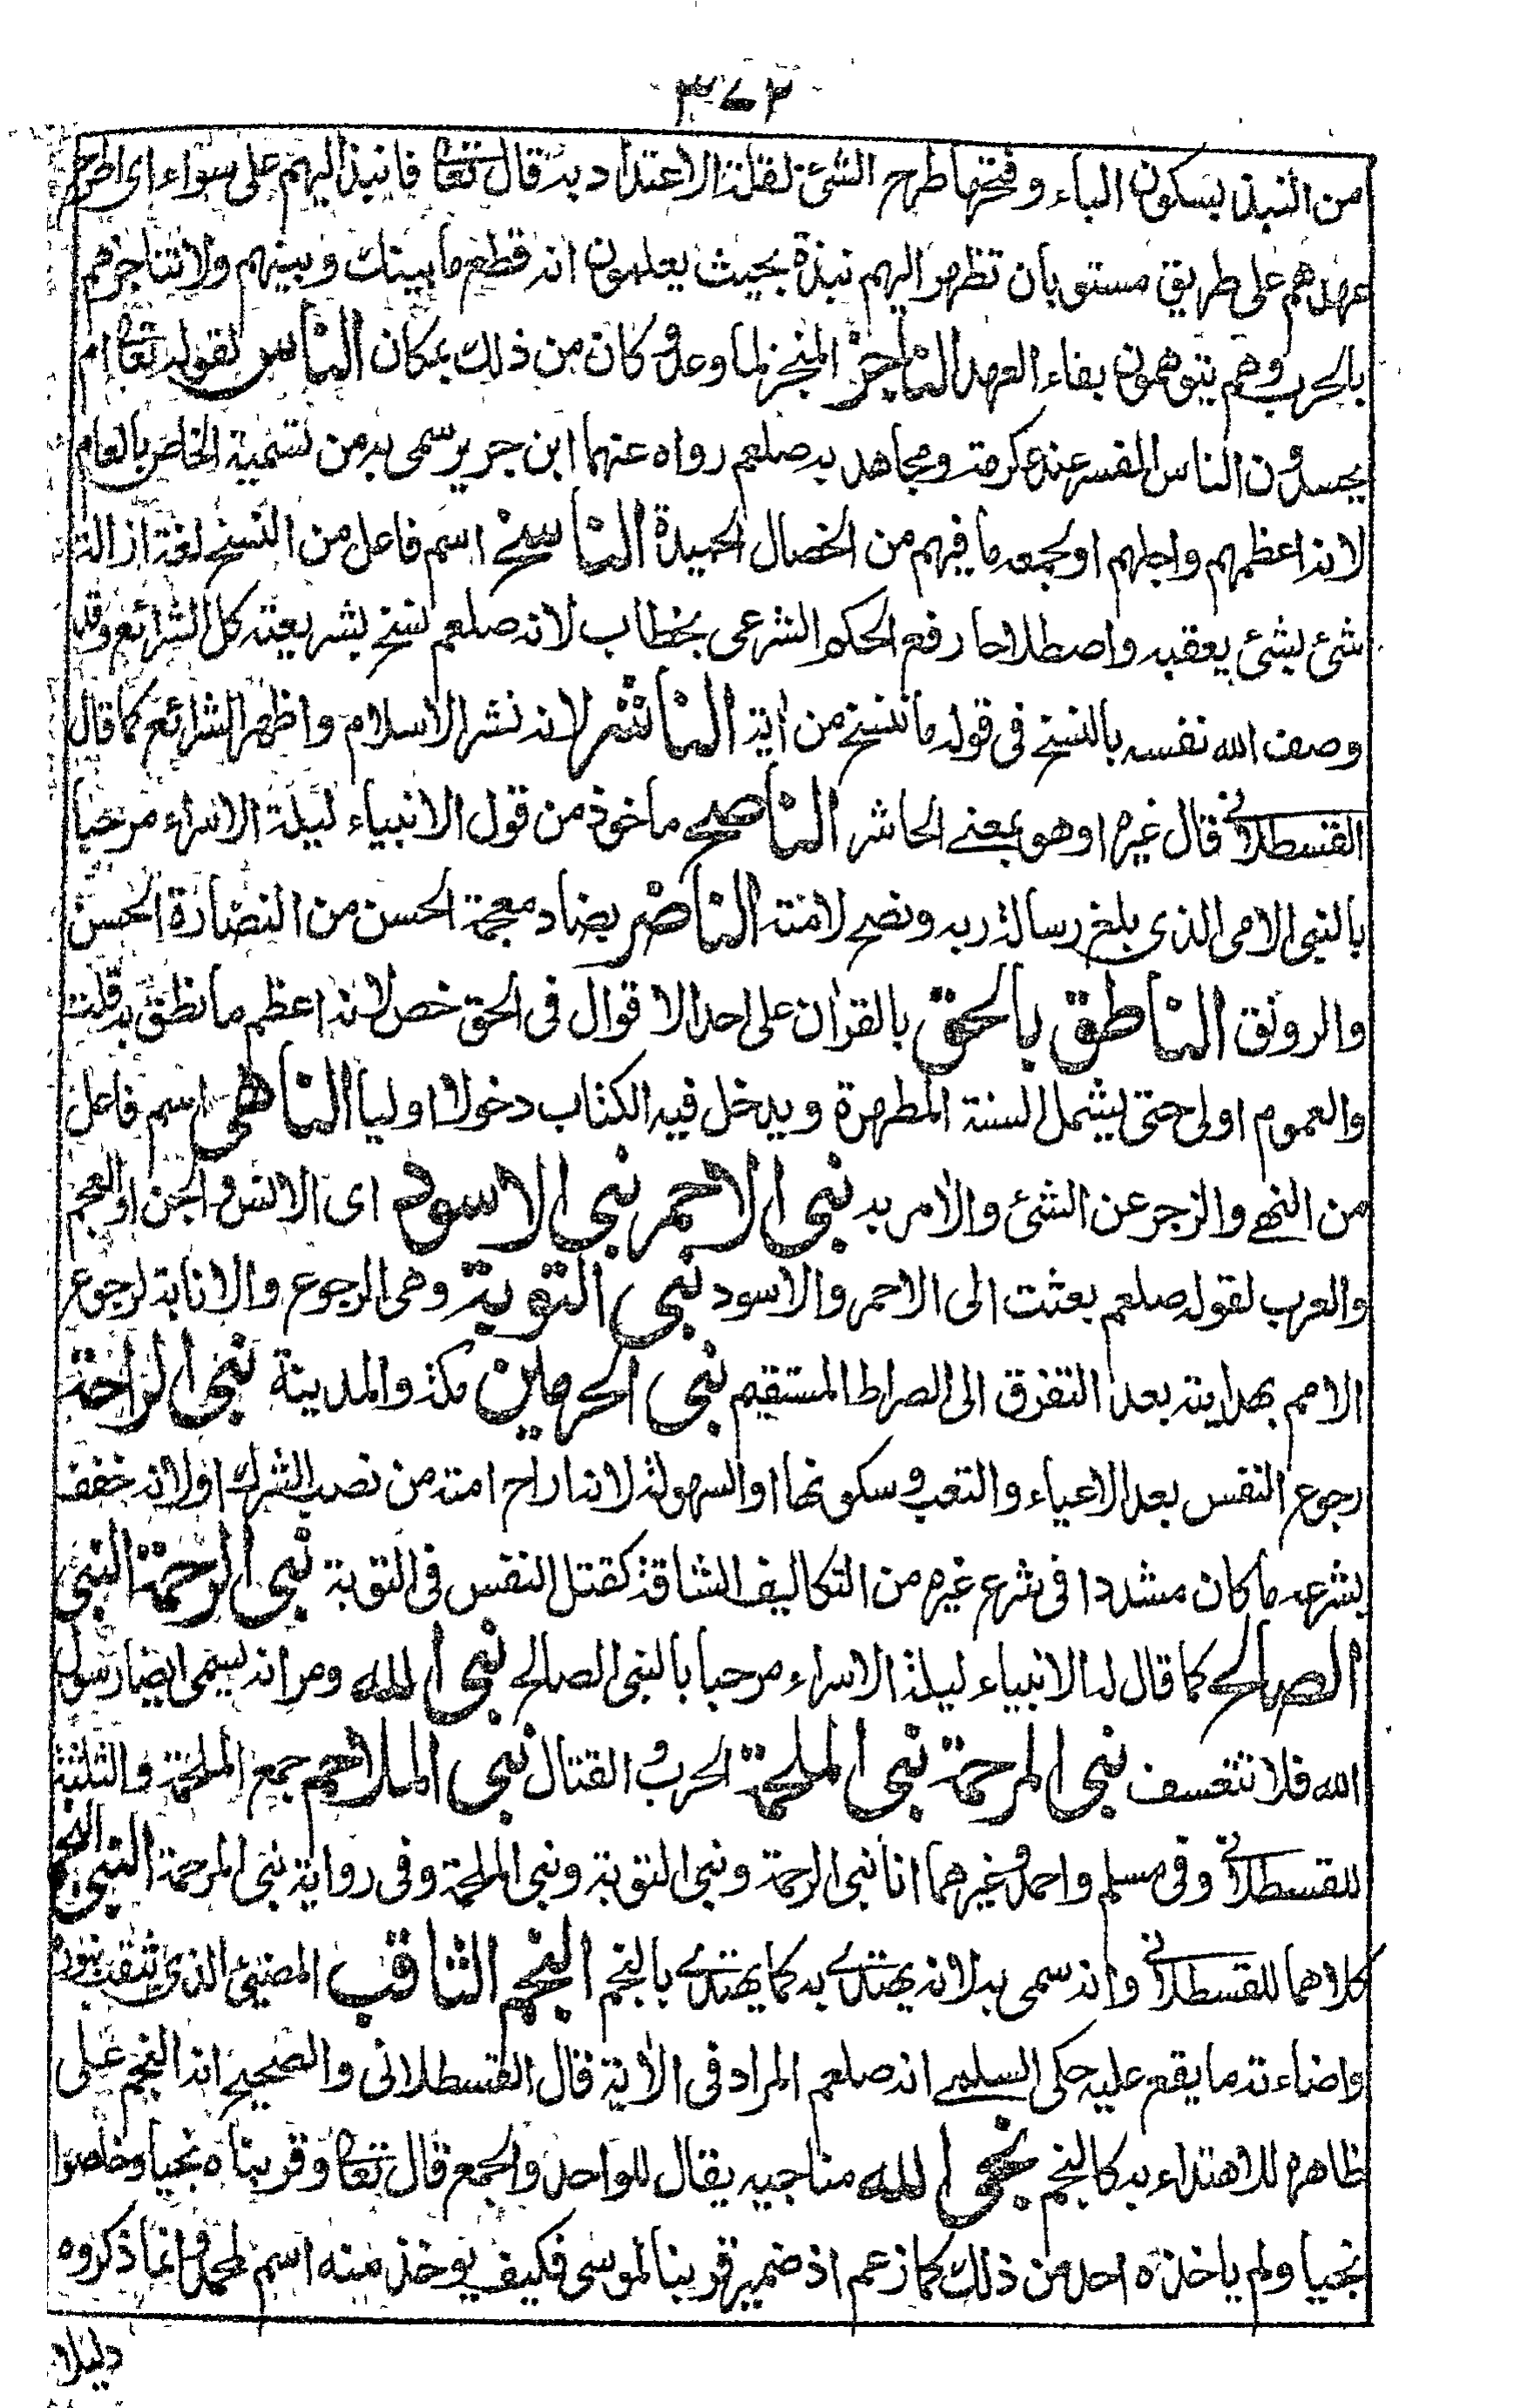 ٣٧٢
من النبذ بسكون الباء وفتحها طرح الشئ لقلة الاعتداد به قال تعا فانبذ اليهم على سواء اى اطرح
عهدهم على طريق مستو بان تظهر اليهم نبذة بحيث يعلمون انه قطع ما بينك وبينهم ولا تناجزهم
بالحرب وهم يتوهمون بقاء العهد الناجز المنجز لما وعد وكان من ذلك بمكان الناس لقوله تعا ام
يحسدون الناس المفسر عند عكرمة ومجاهد به صلعم رواه عنهما ابن جرير سمى به من تسمية الخاص بالعام
لانه اعظمهم واجلهم او لجمعه ما فيهم من الخصال الحميدة الناسخ اسم فاعل من النسخ لغة ازالة
شئ بشئ يعقبه واصطلاحا رفع الحكم الشرعى بخطاب لانه صلعم نسخ بشريعته كل الشرائع وقد
وصف الله نفسه بالنسخ فى قوله ما ننسخ من اية الناشر لانه نشر الاسلام واظهر الشرائع كما قال
القسطلانى قال غيره او هو بمعنے الحاشر الناصح ماخوذ من قول الانبياء ليلة الاسراء مرحبا
بالنبى الامى الذى بلغ رسالة ربه ونصح لامته الناضر بضاد معجمة الحسن من النضارة الحسن
والرونق الناطق بالحق بالقران على احد الاقوال فى الحق خص لانه اعظم ما نطق به قلت
والعموم اولى حتى يشمل السنة المطهرة ويدخل فيه الكتاب دخولا اوليا الناهى اسم فاعل
من النهے والزجر عن الشئ والامر به نبى الاحمر نبى الاسود اى الانس والجن او العجم
والعرب لقوله صلعم بعثت الى الاحمر والاسود نبى التوبة وهى الرجوع والانابة لرجوع
الامم بهدايته بعد التفرق الى الصراط المستقيم نبى الحرمين مكة والمدينة نبى الراحة
رجوع النفس بعد الاعياء والتعب وسكونها او السهولة لانه اراح امته من نصب الشرك او لانه خفف
بشرعه ما كان مشددا فى شرع غيره من التكاليف الشاقة كقتل النفس فى التوبة نبى الرحمة النبى
الصالح كما قال له الانبياء ليلة الاسراء مرحبا بالنبى الصالح نبى الله ومر انه يسمى ايضا رسول
الله فلا تتعسف نبى المرحمة نبى الملحمة الحرب والقتال نبى الملاحم جمع الملحمة والثلثة
للقسطلانى وفى مسلم واحمد وغيرهما انا نبى الرحمة ونبى التوبة ونبى الملحمة وفى رواية نبى المرحمة النبى النجم
كلاهما للقسطلانى وانه سمى به لانه يهتدے به كما يهتدے بالنجم النجم الثاقب المضيئ الذى يثقب بنوره
واضاءته ما يقع عليه حكى السلمے انه صلعم المراد فى الاية قال القسطلانى والصحيح انه النجم على
ظاهره للاهتداء به كالنجم نجى الله مناجيه يقال للواحد والجمع قال تعا وقربناه نجيا وخلصوا
نجيا ولم ياخذه احد من ذلك كما زعم اذ ضمير قربنا لموسى فكيف يوخذ منه اسم لمحمد وانما ذكروه
دليلا